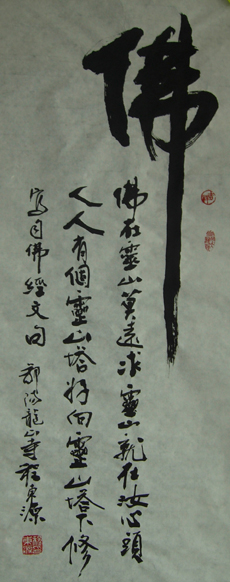 佛
佛在靈山莫遠求靈山就在汝心頭
人人有個靈山塔好向靈山塔下修
寫自佛經文句
龍山寺程東源